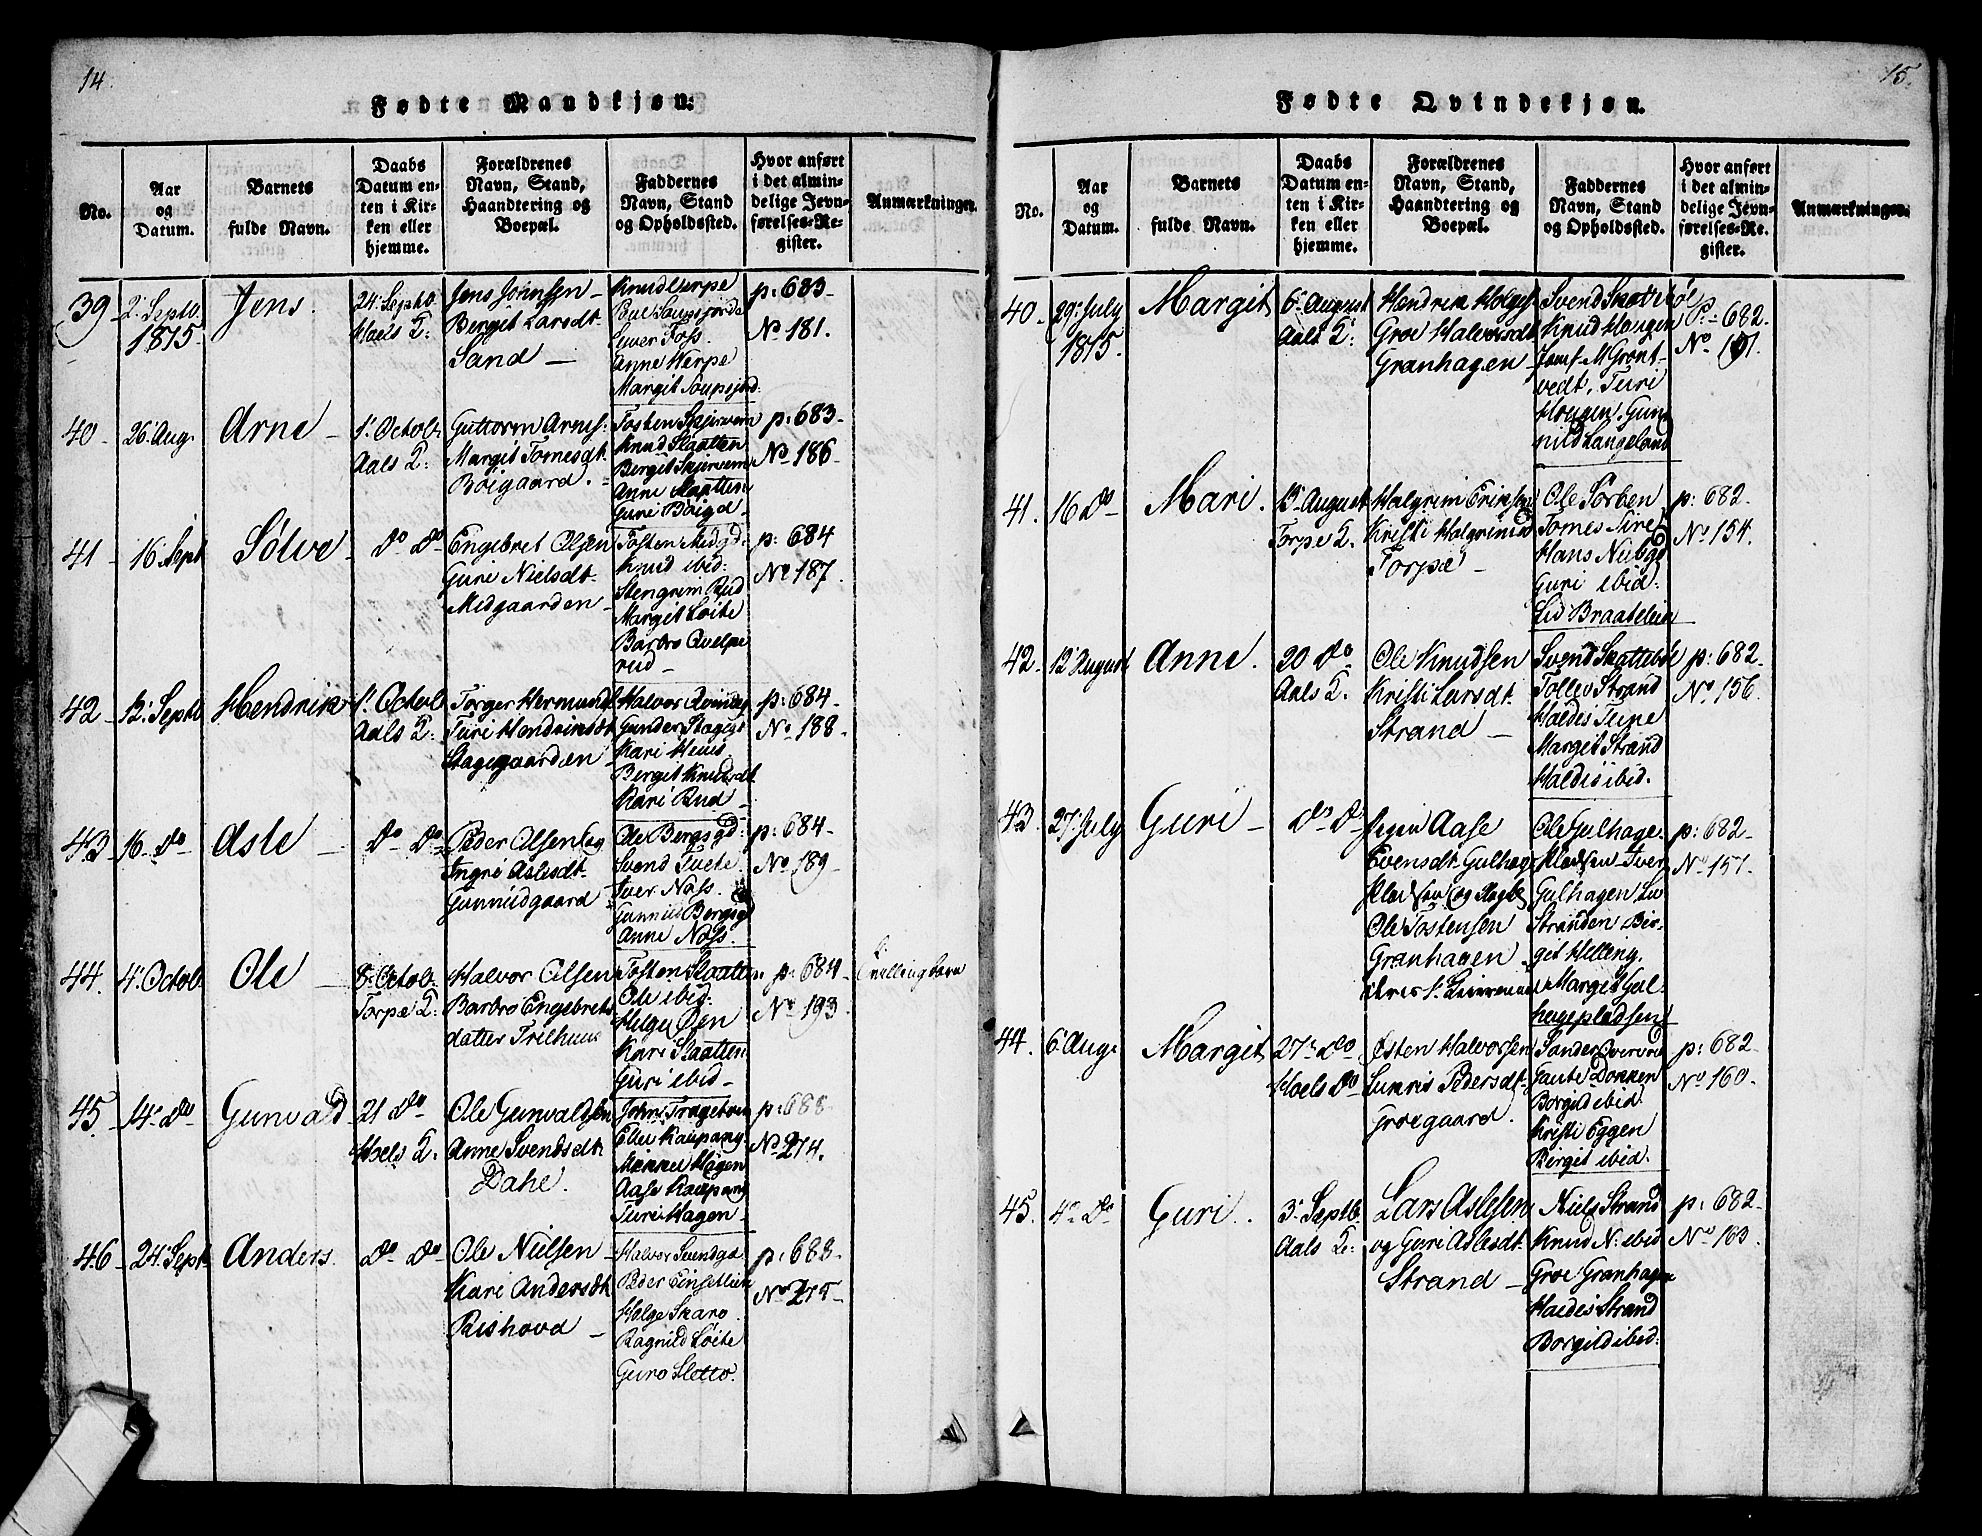 14.
Fødte Mandkjøn.
No.
Aar
og
Datum.
Barnets
fulde Navn.
Daabs
Datum en-
ten i Kir-
ken eller
hjemme.
Forældrenes
Navn, Stand,
Haandtering og
Boepæl.
Faddernes
Navn, Stand
og Opholdssted.
Hvor anført
i det almin-
delige Jevn-
førelses-Re-
gister.
Anmærkninger.
39
2. Septb.
1815.
Jens.
24. Septb.
Hoels K:
Jens Johnsen
Bergit Larsdt.
Sand
Knud Werpe
Iver Foss.
Anne Werpe
p: 683
No 181.
40
26. Aug.
Arne
1. Octob.
Aals K:
Guttorm Arnes:
Margit Tomesdt.
Böigaard.
Tosten Skjervem
Knud Slaatten
Bergit Skjervem
Anne Slaatten
Guri Böigd
p: 683
No 186
41
16 Sept
Sølve
do do
Engebret Olsen
Guri Nielsdt.
Midgaarden
Tosten Midgd:
Knud ibid:
Stengrim Rud
Margit Löite
Barbro Qvelpe
rud
p: 684
No 187
42
12. Septb
Hendrik
1. Octob.
Aals K:
Torger Hermunds
Turi Hendriksdt
Stagegaarden
Gunder
Kari
Bergit Knudsdt.
Kari Rud
p: 684
No 188
43
16 do
Asle
do do
Peder Olsen og
Ingri Aslesdt.
Gunnildgaard
Ole Bergsgd:
Svend Tveite
Iver Næss.
Gunnild Bergsgd
Anne Næss.
p: 684
No 189
44.
4. Octob.
Ole
8. Octob.
Torpe K:
Halvor Olsen
Barbro Engebrets
datter Trilhuus
Tosten Slaatten
Ole ibid:
Helge Øen
Kari Slaatten
Guri ibid
p: 684
No 193
Tvillingbarn
45.
14. do
Gunvald
21 do
Hoels K:
Ole Gunvaldsen
Anne Svendsdt.
Dahle.
John
Kaupang
Mikkel Hagen
Aase Kaupang
Turi Hagen
p: 688
No 274.
46
24. Sept.
Anders.
do do
Ole Nielsen
Kari Andersdt
Rishovd
Halvor Svendgd
Peder Einsetlien
Helge Skaro
Ragnild Löite
Guro Sletto.
p: 688
No 275
15.
Fødte Qvindekjøn.
No.
Aar
og
Datum.
Barnets
fulde Navn.
Daabs
Datum en-
ten i Kir-
ken eller
hjemme.
Forældrenes
Navn, Stand,
Haandtering og
Boepæl.
Faddernes
Navn, Stand
og Opholdssted.
Hvor anført
i det almin-
delige Jevn-
førelses-Re-
gister.
Anmærkninger.
40
29. July
1815.
Margit
6. August
Aals K:
Hendrik Helges
Groe Halvorsdt
Granhagen
Svend Skattebøl
Knud Haugen
vedt, Turi
Haugen. Gun
nild Langeland
P: 682.
No 191.
41.
16 do
Mari.
13. August
Torpe K.
Halgrim Eriksen
Kristi Halgrimsd
Torpe
Ole Torben
Tomes Sire
Hans Nubgd
Guri ibid:
Liv Braatelien
p: 682.
No 154.
42.
12. August
Anne.
20 do
Aals K.
Ole Knudsen
Kristi Larsdt.
Strand
Svend Skattebøl
Tollev Strand
Haldis Teipe
Margit Strand
Haldis ibid.
p: 682.
No 156.
43.
27. July
Guri
do do
Pigen Aase
Evensdt. Gulhage
pladsen og
Ole Tostensen
Granhagen.
deres 1. Leiermaal
Ole Gulhage-
pladsen Iver
Gulhagen Liv
Stranden Ber-
git Helling.
Margit Gul-
hagepladsen
p: 682
No 157.
44.
6. Aug.
Margit
27. do
Hoels do
Østen Halvorsen
Sunris Pedersdt.
Groegaard.
Sander
Gaute Dokken
Borgild ibid
Kristi Eggen
Birgit ibid.
p: 682
No 160.
45.
4. do
Guri.
3. Septb.
Aals K:
Lars Aslesen
og Guri Aslesdt.
Strand
Niels Strand
Knud N: ibid
Groe Granhagen
Haldis Strand
Borgild ibid:
p: 682.
No 163.